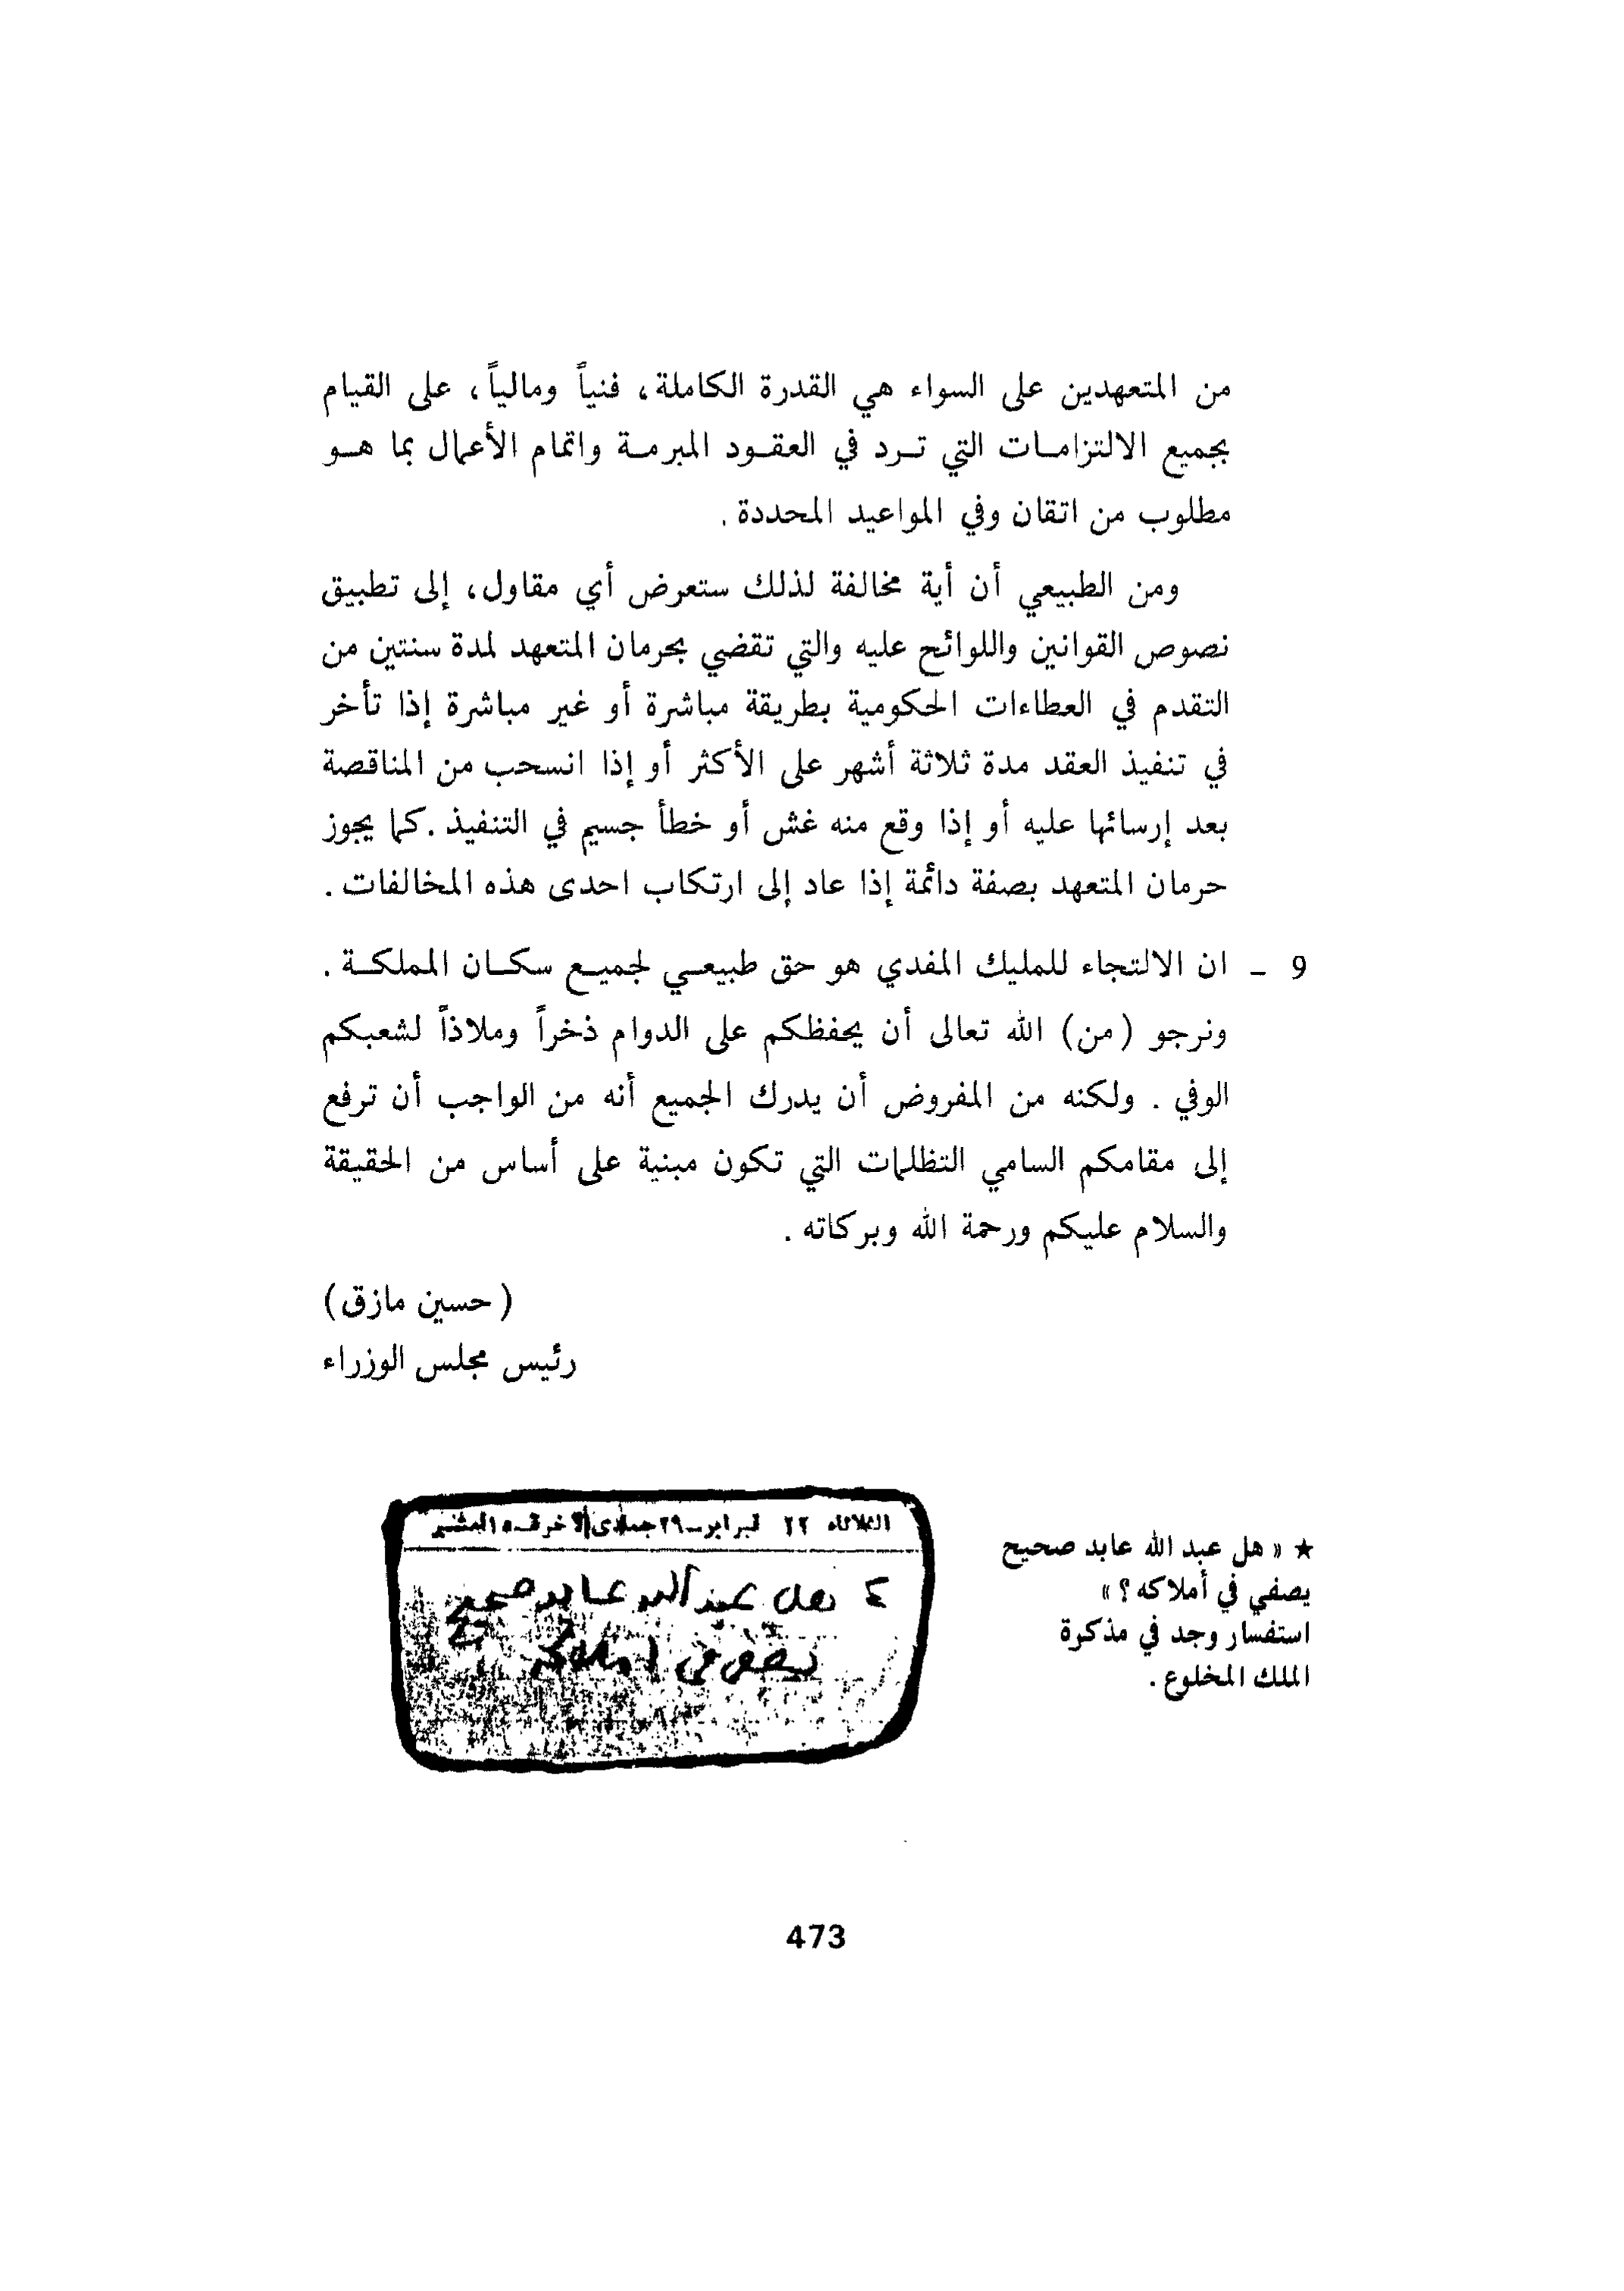 من المتعهدين على السواء هي القدرة الكاملة، فنياً ومالياً، على القيام
بجميع الالتزامات التي ترد في العقود المبرمة واتمام الأعمال بما هو
مطلوب من اتقان وفي المواعيد المحددة.
ومن الطبيعي أن أية مخالفة لذلك ستعرض أي مقاول، إلى تطبيق
نصوص القوانين واللوائح عليه والتي تقضي بحرمان المتعهد لمدة سنتين من
التقدم في العطاءات الحكومية بطريقة مباشرة أو غير مباشرة إذا تأخر
في تنفيذ العقد مدة ثلاثة أشهر على الأكثر أو إذا انسحب من المناقصة
بعد إرسائها عليه أو إذا وقع منه غش أو خطأ جسيم في التنفيذ. كما يجوز
حرمان المتعهد بصفة دائمة إذا عاد إلى ارتكاب احدى هذه المخالفات.
9 - ان الالتجاء للمليك المفدي هو حق طبيعي لجميع سكان المملكة.
ونرجو (من) الله تعالى أن يحفظكم على الدوام ذخراً وملاذاً لشعبكم
الوفي. ولكنه من المفروض أن يدرك الجميع أنه من الواجب أن ترفع
إلى مقامكم السامي التظلمات التي تكون مبنية على أساس من الحقيقة
والسلام عليكم ورحمة الله وبركاته.
(حسين مازق)
رئيس مجلس الوزراء
★ « هل عبد الله عابد صحيح
يصفي في أملاكه؟ »
استفسار وجد في مذكرة
الملك المخلوع.
الثلاثاء ٢٢ فبراير - ٢٩ جمادى الآخرة
هل عبد الله عابد صحيح
يصفي في املاكه
473